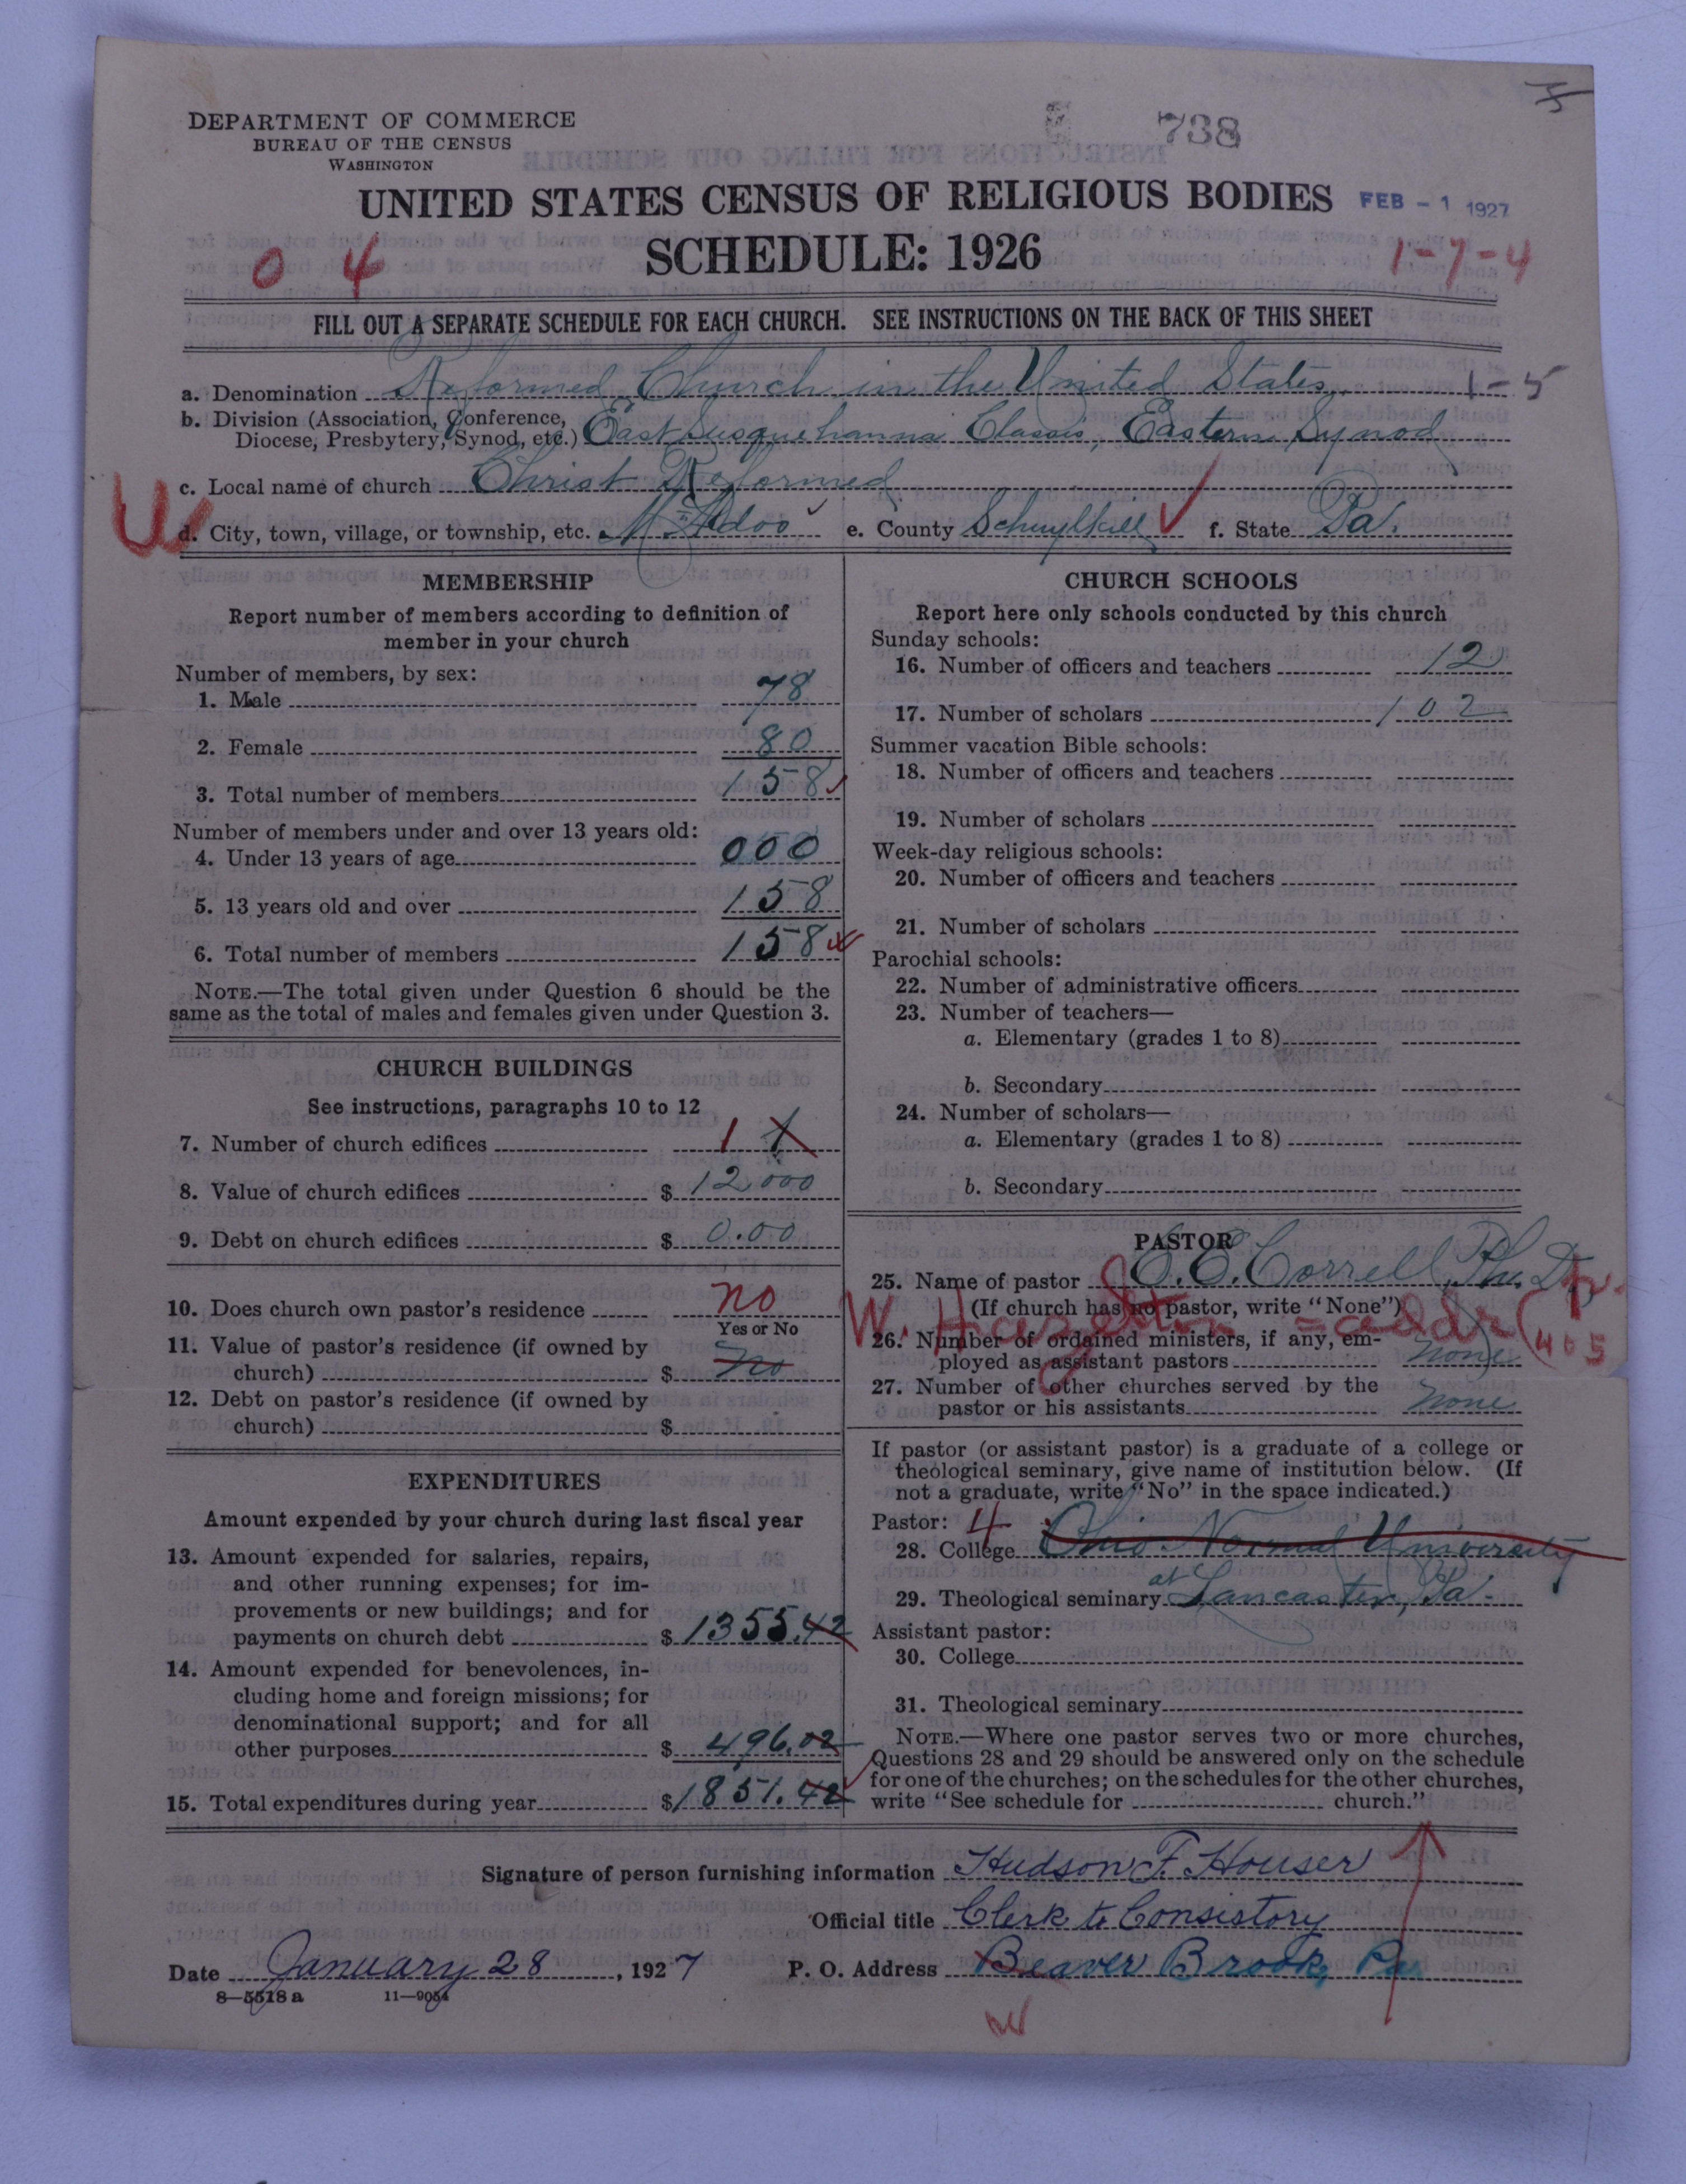 DEPARTMENT OF COMMERCE
BUREAU OF THE CENSUS
WASHINGTON
738
UNITED STATES CENSUS OF RELIGIOUS BODIES
FEB - 1 1927
SCHEDULE: 1926
0 4
1-7-4
FILL OUT A SEPARATE SCHEDULE FOR EACH CHURCH. SEE INSTRUCTIONS ON THE BACK OF THIS SHEET
a. Denomination Reformed Church in the United States 1-5
b. Division (Association, Conference,
Diocese, Presbytery, Synod, etc.) East Susquehanna Classis, Eastern Synod
c. Local name of church Christ Reformed
W
d. City, town, village, or township, etc. McAdoo e. County Schuylkill f. State Pa.
MEMBERSHIP
Report number of members according to definition of
member in your church
Number of members, by sex:
1. Male 78
2. Female 80
3. Total number of members 158
Number of members under and over 13 years old:
4. Under 13 years of age 000
5. 13 years old and over 158
6. Total number of members 158
NOTE.—The total given under Question 6 should be the
same as the total of males and females given under Question 3.
CHURCH BUILDINGS
See instructions, paragraphs 10 to 12
7. Number of church edifices 1 1
8. Value of church edifices $ 12000
9. Debt on church edifices $ 0.00
10. Does church own pastor's residence no
Yes or No
11. Value of pastor's residence (if owned by
church) $ no
12. Debt on pastor's residence (if owned by
church) $
EXPENDITURES
Amount expended by your church during last fiscal year
13. Amount expended for salaries, repairs,
and other running expenses; for im-
provements or new buildings; and for
payments on church debt $ 1355.42
14. Amount expended for benevolences, in-
cluding home and foreign missions; for
denominational support; and for all
other purposes $ 496.02
15. Total expenditures during year $ 1851.42
CHURCH SCHOOLS
Report here only schools conducted by this church
Sunday schools:
16. Number of officers and teachers 12
17. Number of scholars 102
Summer vacation Bible schools:
18. Number of officers and teachers
19. Number of scholars
Week-day religious schools:
20. Number of officers and teachers
21. Number of scholars
Parochial schools:
22. Number of administrative officers
23. Number of teachers—
a. Elementary (grades 1 to 8)
b. Secondary
24. Number of scholars—
a. Elementary (grades 1 to 8)
b. Secondary
PASTOR
25. Name of pastor C. E. Correll, Ph. D.
(If church has no pastor, write "None")
W. Hazelton = addr (p. 405
26. Number of ordained ministers, if any, em-
ployed as assistant pastors none
27. Number of other churches served by the
pastor or his assistants none
If pastor (or assistant pastor) is a graduate of a college or
theological seminary, give name of institution below. (If
not a graduate, write "No" in the space indicated.)
Pastor: 4
28. College Ohio Normal University
29. Theological seminary at Lancaster, Pa.
Assistant pastor:
30. College
31. Theological seminary
NOTE.—Where one pastor serves two or more churches,
Questions 28 and 29 should be answered only on the schedule
for one of the churches; on the schedules for the other churches,
write "See schedule for church."
Signature of person furnishing information Hudson F. Houser
Official title Clerk to Consistory
Date January 28, 1927 P. O. Address Beaver Brook, Pa
8—5518 a 11—9054
W